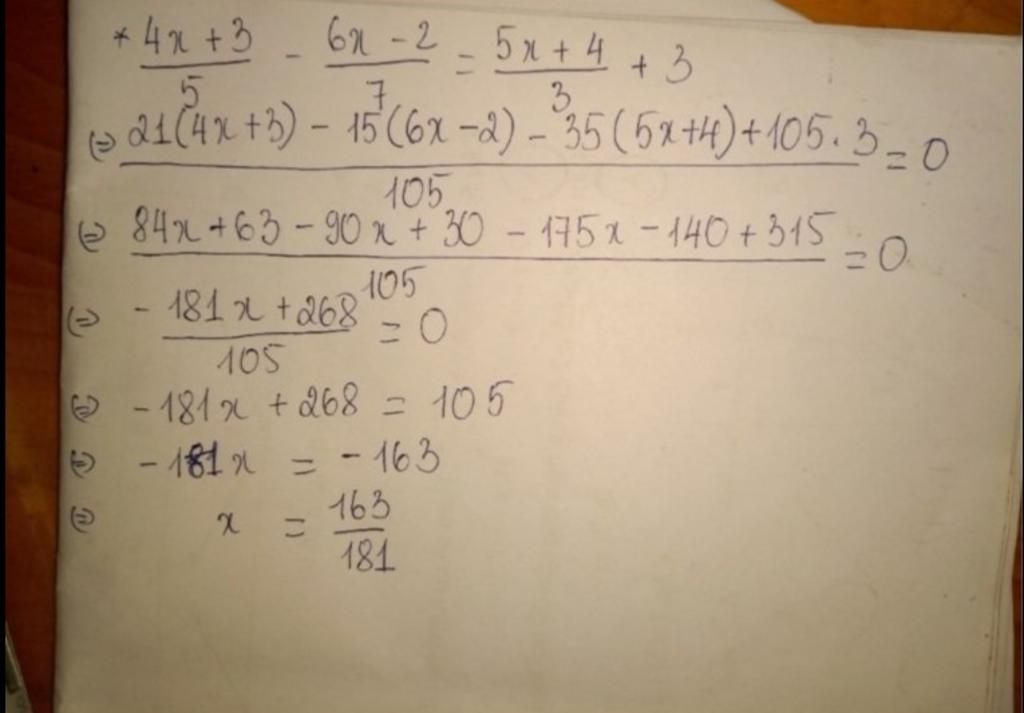 * (4x + 3)/5 - (6x - 2)/7 = (5x + 4)/3 + 3
(=) (21(4x+3) - 15(6x-2) - 35(5x+4) + 105.3)/105 = 0
(=) (84x + 63 - 90x + 30 - 175x - 140 + 315)/105 = 0
(=) (-181x + 268)/105 = 0
(=) -181x + 268 = 105
(=) -181x = -163
(=) x = 163/181